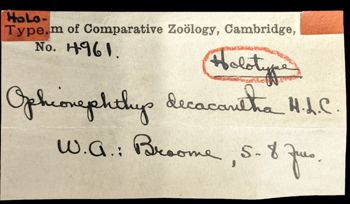 Holo-
Type.m of Comparative Zoölogy, Cambridge,
No. 4961.
Holotype
Ophionephthys decacantha H.L.C.
W.A.: Broome, 5-8 fms.